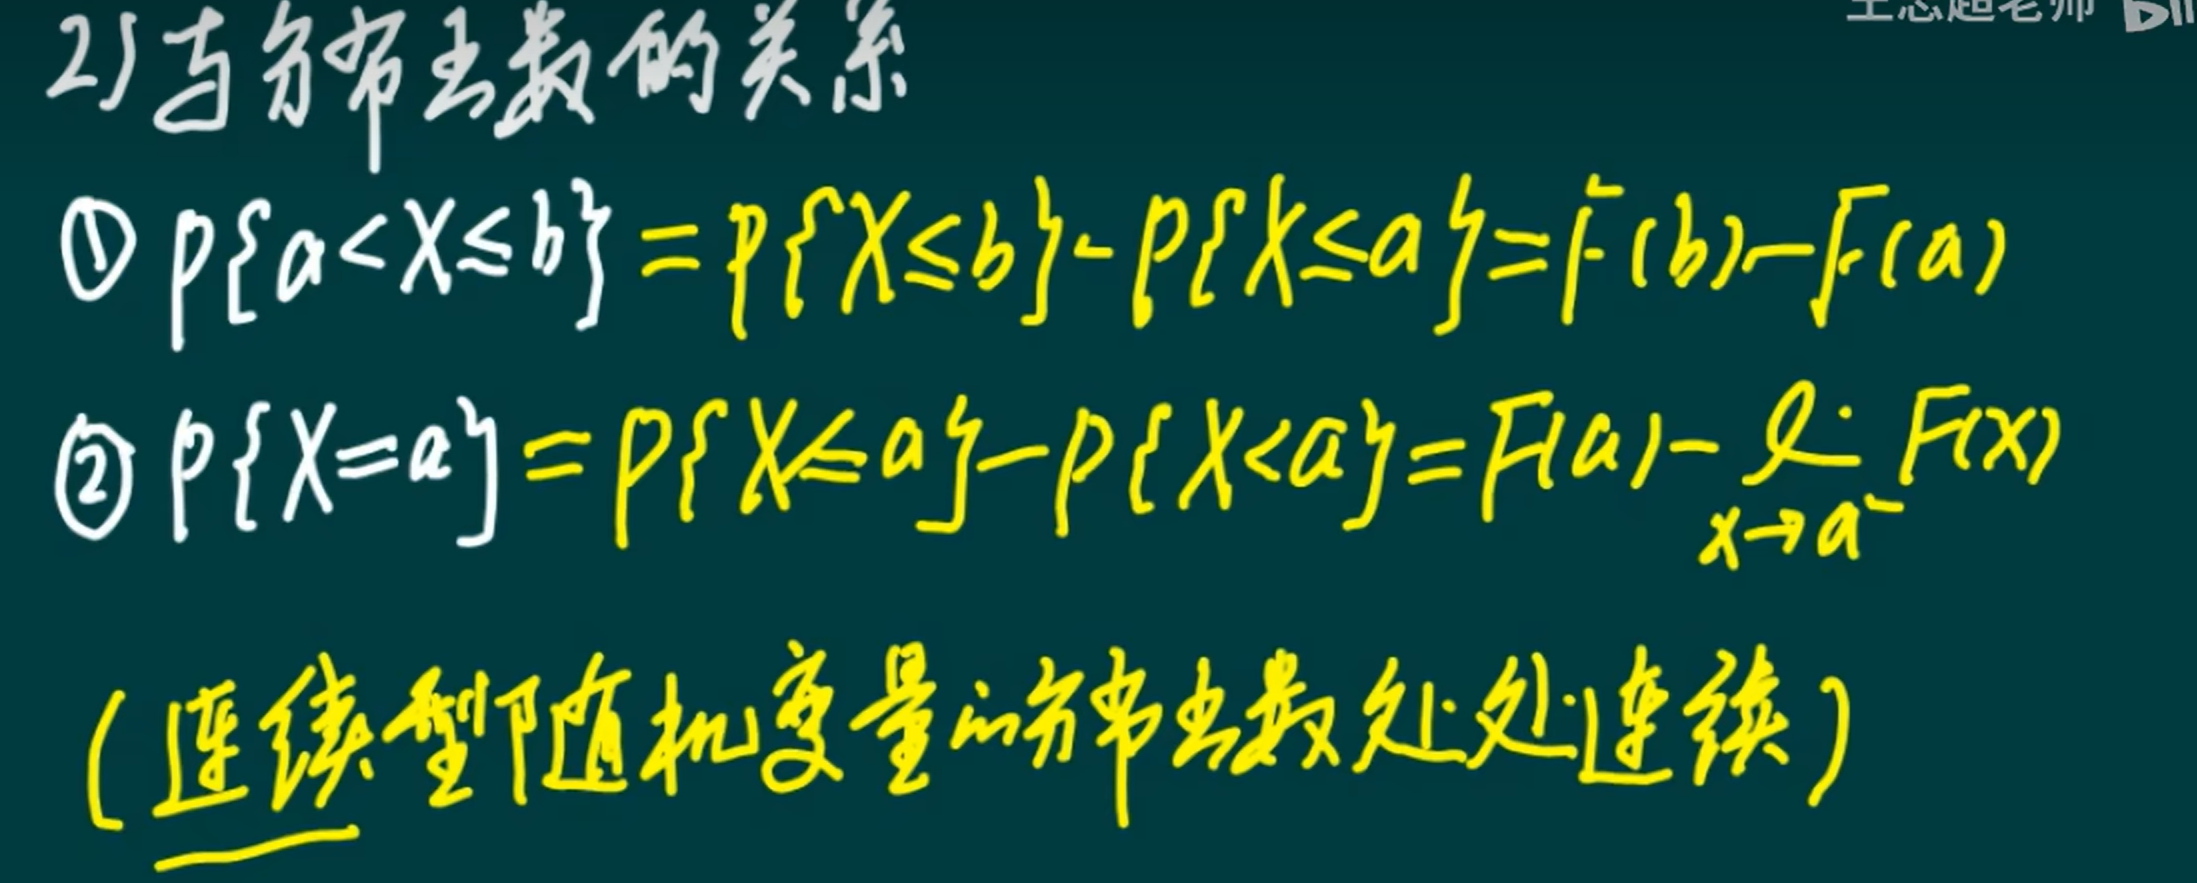 王志超老师 bili
2) 与分布函数的关系
① P{a<X≤b} = P{X≤b} - P{X≤a} = F(b) - F(a)
② P{X=a} = P{X≤a} - P{X<a} = F(a) - lim F(x)
x→a⁻
(连续型随机变量的分布函数处处连续)